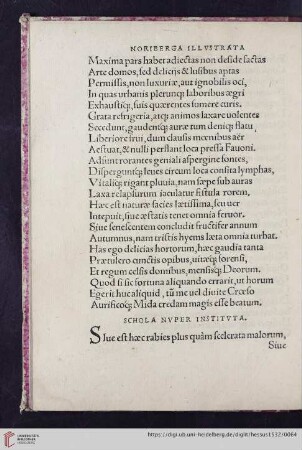 NORIBERGA ILLVSTRATA
Maxima pars habet adiectas non deside factas
Arte domos, sed delicijs & lusibus aptas
Permissis, non luxuriæ, aut ignobilis oci,
In quas urbanis plerunq; laboribus ægri
Exhaustiq;, suis quærentes sumere curis.
Grata refrigeria, atq; animos laxare uolentes
Secedunt, gaudentq; auræ tum deniq; flatu
Liberiore frui, dum clausis mœnibus aër
Aestuat, & nulli perflant loca pressa Fauoni.
Adiunt rorantes geniali aspergine fontes,
Disperguntq; leues circum loca consita lymphas,
Vitaliq; rigant pluuia, nam sæpe sub auras
Laxa relapsurum iaculatur fistula rorem,
Hæc est naturæ facies lætissima, seu uer
Intepuit, siue æstatis tenet omnia feruor.
Siue senescentem concludit fructifer annum
Autumnus, nam tristis hyems læta omnia turbat.
Has ego delicias hortorum, hæc gaudia tanta
Prætulero cunctis opibus, uitæq; forensi,
Et regum celsis domibus, mensisq; Deorum.
Quod si sic fortuna aliquando errarit, ut horum
Egerit huc aliquid, tũ me uel diuite Crœso
Aurificoq; Mida credam magis esse beatum.
SCHOLA NVPER INSTITVTA.
Siue est hæc rabies plus quàm scelerata malorum,
Siue
UNIVERSITÄTS-
BIBLIOTHEK
HEIDELBERG
https://digi.ub.uni-heidelberg.de/diglit/hessus1532/0064